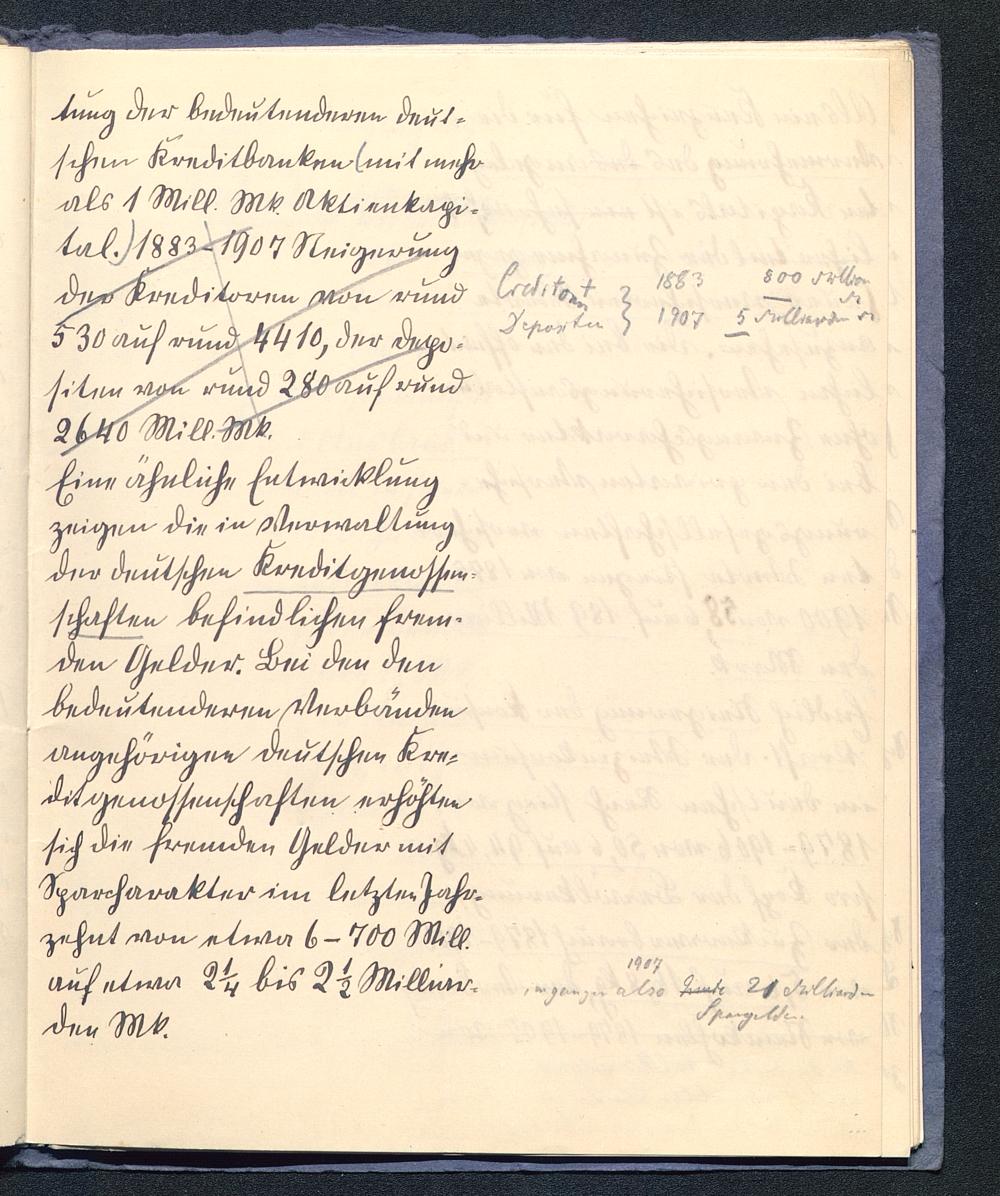 tung der bedeutenderen deut-
schen Kreditbanken (mit mehr
als 1 Mill. Mk. Aktienkapi-
tal.) 1883-1907 Steigerung
der Kreditoren von rund
530 auf rund 4410, der Depo-
siten von rund 280 auf rund
2640 Mill. Mk.
Creditoren + 1883 800 Million
Depositen 1907 5 Milliarden
Eine ähnliche Entwicklung
zeigen die in Verwaltung
der deutschen Kreditgenossen-
schaften befindlichen frem-
den Gelder. Bei den den
bedeutenderen Verbänden
angehörigen deutschen Kre-
ditgenossenschaften erhöhten
sich die fremden Gelder mit
Sparcharakter im letzten Jahr-
zehnt von etwa 6-700 Mill.
auf etwa 2 1/4 bis 2 1/2 Milliar-
den Mk.
1907
also heute 21 Milliarden
Spargelder